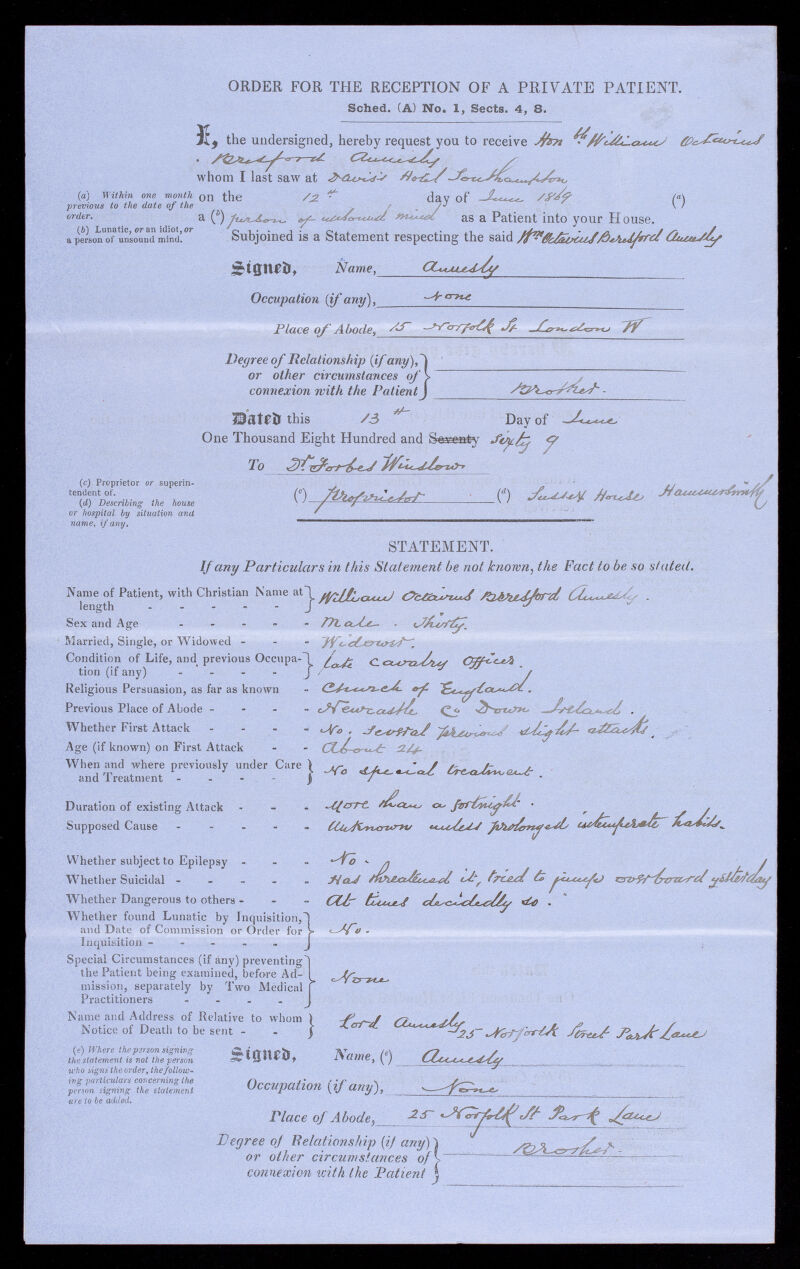 ORDER FOR THE RECEPTION OF A PRIVATE PATIENT.
Sched. (A) No. 1, Sects. 4, 8.
I, the undersigned, hereby request you to receive Hon ble William Octavius
Beresford Annesly
whom I last saw at Davis's Hotel Southampton
(a) Within one month previous to the date of the order.
on the 12th day of June 1869 (a)
(b) Lunatic, or an idiot, or a person of unsound mind.
a (b) person of unsound mind as a Patient into your House.
Subjoined is a Statement respecting the said Wm. Octavius Beresford Annesly
Signed, Name, Annesly
Occupation (if any), None
Place of Abode, 15 Norfolk St London W
Degree of Relationship (if any),
or other circumstances of
connexion with the Patient Brother.
Dated this 13th Day of June
One Thousand Eight Hundred and Seventy Sixty 9
To Dr. Forbes Winslow
(c) Proprietor or superintendent of.
(d) Describing the house or hospital by situation and name, if any.
(c) Proprietor (d) Sussex House Hammersmith
STATEMENT.
If any Particulars in this Statement be not known, the Fact to be so stated.
Name of Patient, with Christian Name at
length - - - - - William Octavius Beresford Annesly.
Sex and Age - - - - - Male. Thirty.
Married, Single, or Widowed - - - Widower.
Condition of Life, and previous Occupa-
tion (if any) - - - - late Cavalry Officer.
Religious Persuasion, as far as known - Church of England.
Previous Place of Abode - - - - Newcastle Co Down Ireland.
Whether First Attack - - - - No. Several previous slight attacks.
Age (if known) on First Attack - - About 24
When and where previously under Care
and Treatment - - - - No special treatment.
Duration of existing Attack - - - More than a fortnight.
Supposed Cause - - - - - Unknown unless prolonged intemperate habits.
Whether subject to Epilepsy - - - No.
Whether Suicidal - - - - - Has threatened it, tried to jump overboard yesterday
Whether Dangerous to others - - - At times decidedly so.
Whether found Lunatic by Inquisition,
and Date of Commission or Order for
Inquisition - - - - - No.
Special Circumstances (if any) preventing
the Patient being examined, before Ad-
mission, separately by Two Medical
Practitioners - - - - None
Name and Address of Relative to whom
Notice of Death to be sent - - Lord Annesly 25 Norfolk Street Park Lane
(e) Where the person signing the statement is not the person who signs the order, the following particulars concerning the person signing the statement are to be added.
Signed, Name, (e) Annesly
Occupation (if any), None
Place of Abode, 25 Norfolk St Park Lane
Degree of Relationship (if any)
or other circumstances of
connexion with the Patient Brother.